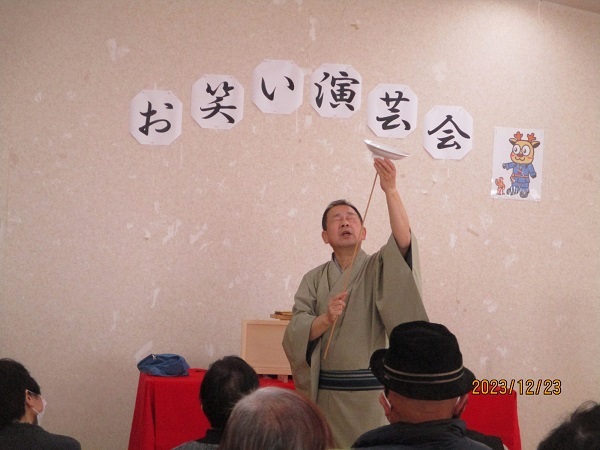 お笑い演芸会
2023/12/23